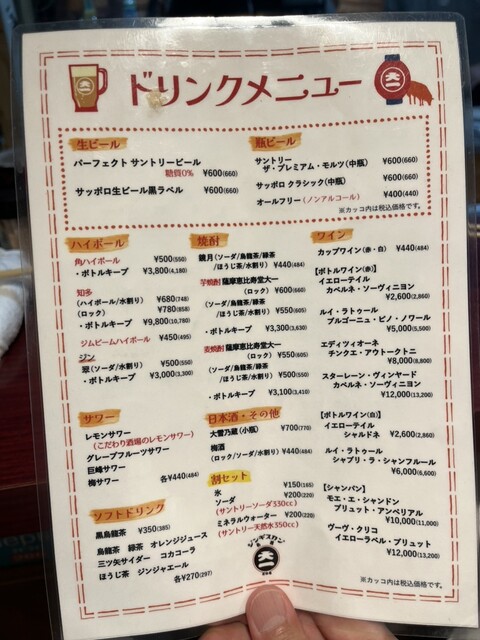 ドリンクメニュー
生ビール
パーフェクト サントリービール
糖質0% ¥600(660)
サッポロ生ビール黒ラベル ¥600(660)
瓶ビール
サントリー
ザ・プレミアム・モルツ(中瓶) ¥600(660)
サッポロ クラシック(中瓶) ¥600(660)
オールフリー(ノンアルコール) ¥400(440)
※カッコ内は税込価格です。
ハイボール
角ハイボール ¥500(550)
・ボトルキープ ¥3,800(4,180)
知多
(ハイボール/水割り) ¥680(748)
(ロック) ¥780(858)
・ボトルキープ ¥9,800(10,780)
ジムビームハイボール ¥450(495)
ジン
翠(ソーダ/水割り) ¥500(550)
・ボトルキープ ¥3,000(3,300)
サワー
レモンサワー
(こだわり酒場のレモンサワー)
グレープフルーツサワー
巨峰サワー
梅サワー 各¥440(484)
ソフトドリンク
黒烏龍茶 ¥350(385)
烏龍茶 緑茶 オレンジジュース
三ツ矢サイダー コカコーラ
ほうじ茶 ジンジャエール
各¥270(297)
焼酎
鏡月(ソーダ/烏龍茶/緑茶
/ほうじ茶/水割り) ¥440(484)
芋焼酎 薩摩恵比寿堂大一
(ロック) ¥600(660)
(ソーダ/烏龍茶/緑茶
/ほうじ茶/水割り) ¥550(605)
・ボトルキープ ¥3,300(3,630)
麦焼酎 薩摩恵比寿堂大一
(ロック) ¥550(605)
(ソーダ/烏龍茶/緑茶
/ほうじ茶/水割り) ¥500(550)
・ボトルキープ ¥3,100(3,410)
日本酒・その他
大雪乃蔵(小瓶) ¥700(770)
梅酒
(ロック/ソーダ/水割り) ¥440(484)
割セット
氷 ¥150(165)
ソーダ ¥200(220)
(サントリーソーダ330cc)
ミネラルウォーター ¥200(220)
(サントリー天然水350cc)
ジンギスカン
大一
ワイン
カップワイン(赤・白) ¥440(484)
【ボトルワイン(赤)】
イエローテイル
カベルネ・ソーヴィニヨン
¥2,600(2,860)
ルイ・ラトゥール
ブルゴーニュ・ピノ・ノワール
¥5,000(5,500)
エディツィオーネ
チンクエ・アウトークトニ
¥8,000(8,800)
スターレーン・ヴィンヤード
カベルネ・ソーヴィニヨン
¥12,000(13,200)
【ボトルワイン(白)】
イエローテイル
シャルドネ ¥2,600(2,860)
ルイ・ラトゥール
シャブリ・ラ・シャンフルール
¥6,000(6,600)
【シャンパン】
モエ・エ・シャンドン
ブリュット・アンペリアル
¥10,000(11,000)
ヴーヴ・クリコ
イエローラベル・ブリュット
¥12,000(13,200)
※カッコ内は税込価格です。